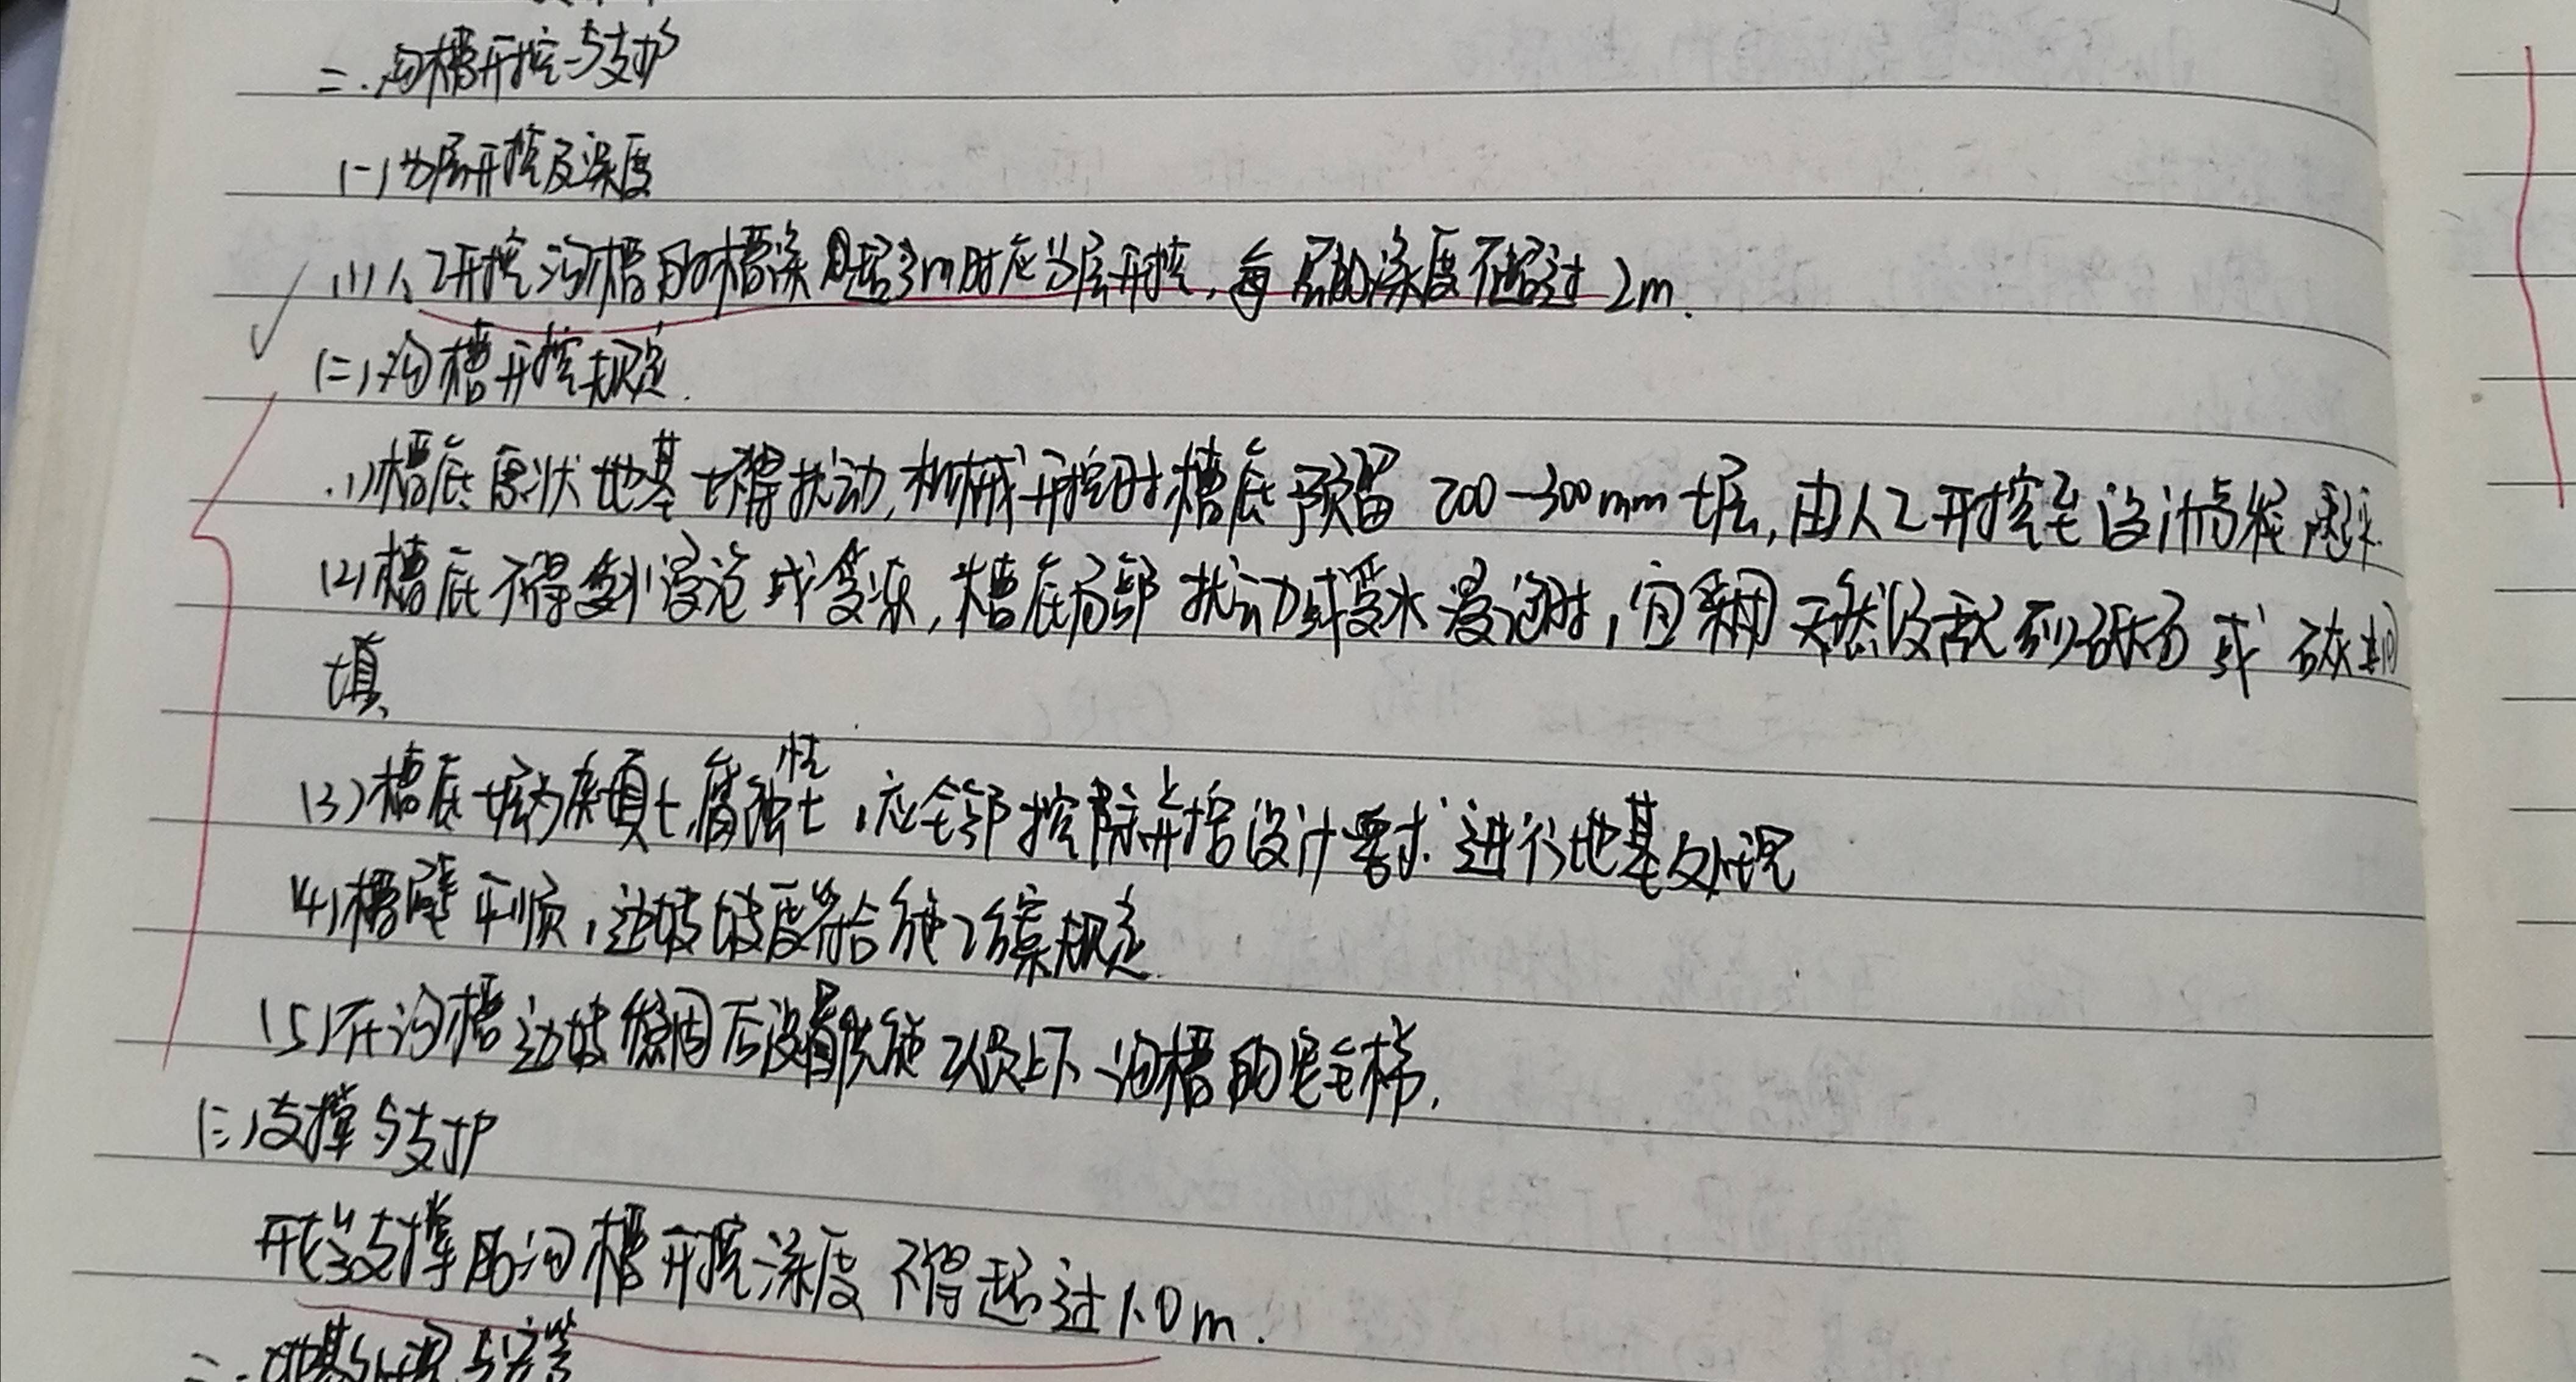 二.沟槽开挖与支护
(一)分层开挖及深度
(1)人工开挖沟槽的槽深超3m时应分层开挖,每层的深度不超过2m.
(二)沟槽开挖规定.
(1)槽底原状地基土不得扰动,机械开挖时槽底预留200-300mm土层,由人工开挖至设计高程,整平.
(2)槽底不得受水浸泡或受冻,槽底局部扰动或受水浸泡时,宜采用天然级配砂砾石或石灰土回
填.
(3)槽底土层为杂填土、腐蚀性土,应全部挖除并按设计要求进行地基处理
(4)槽壁平顺,边坡坡度符合施工方案规定.
(5)在沟槽边坡稳固后设置供施工人员上下沟槽的安全梯.
(三)支撑与支护
开始支撑的沟槽开挖深度不得超过1.0m.
三.地基处理与安管